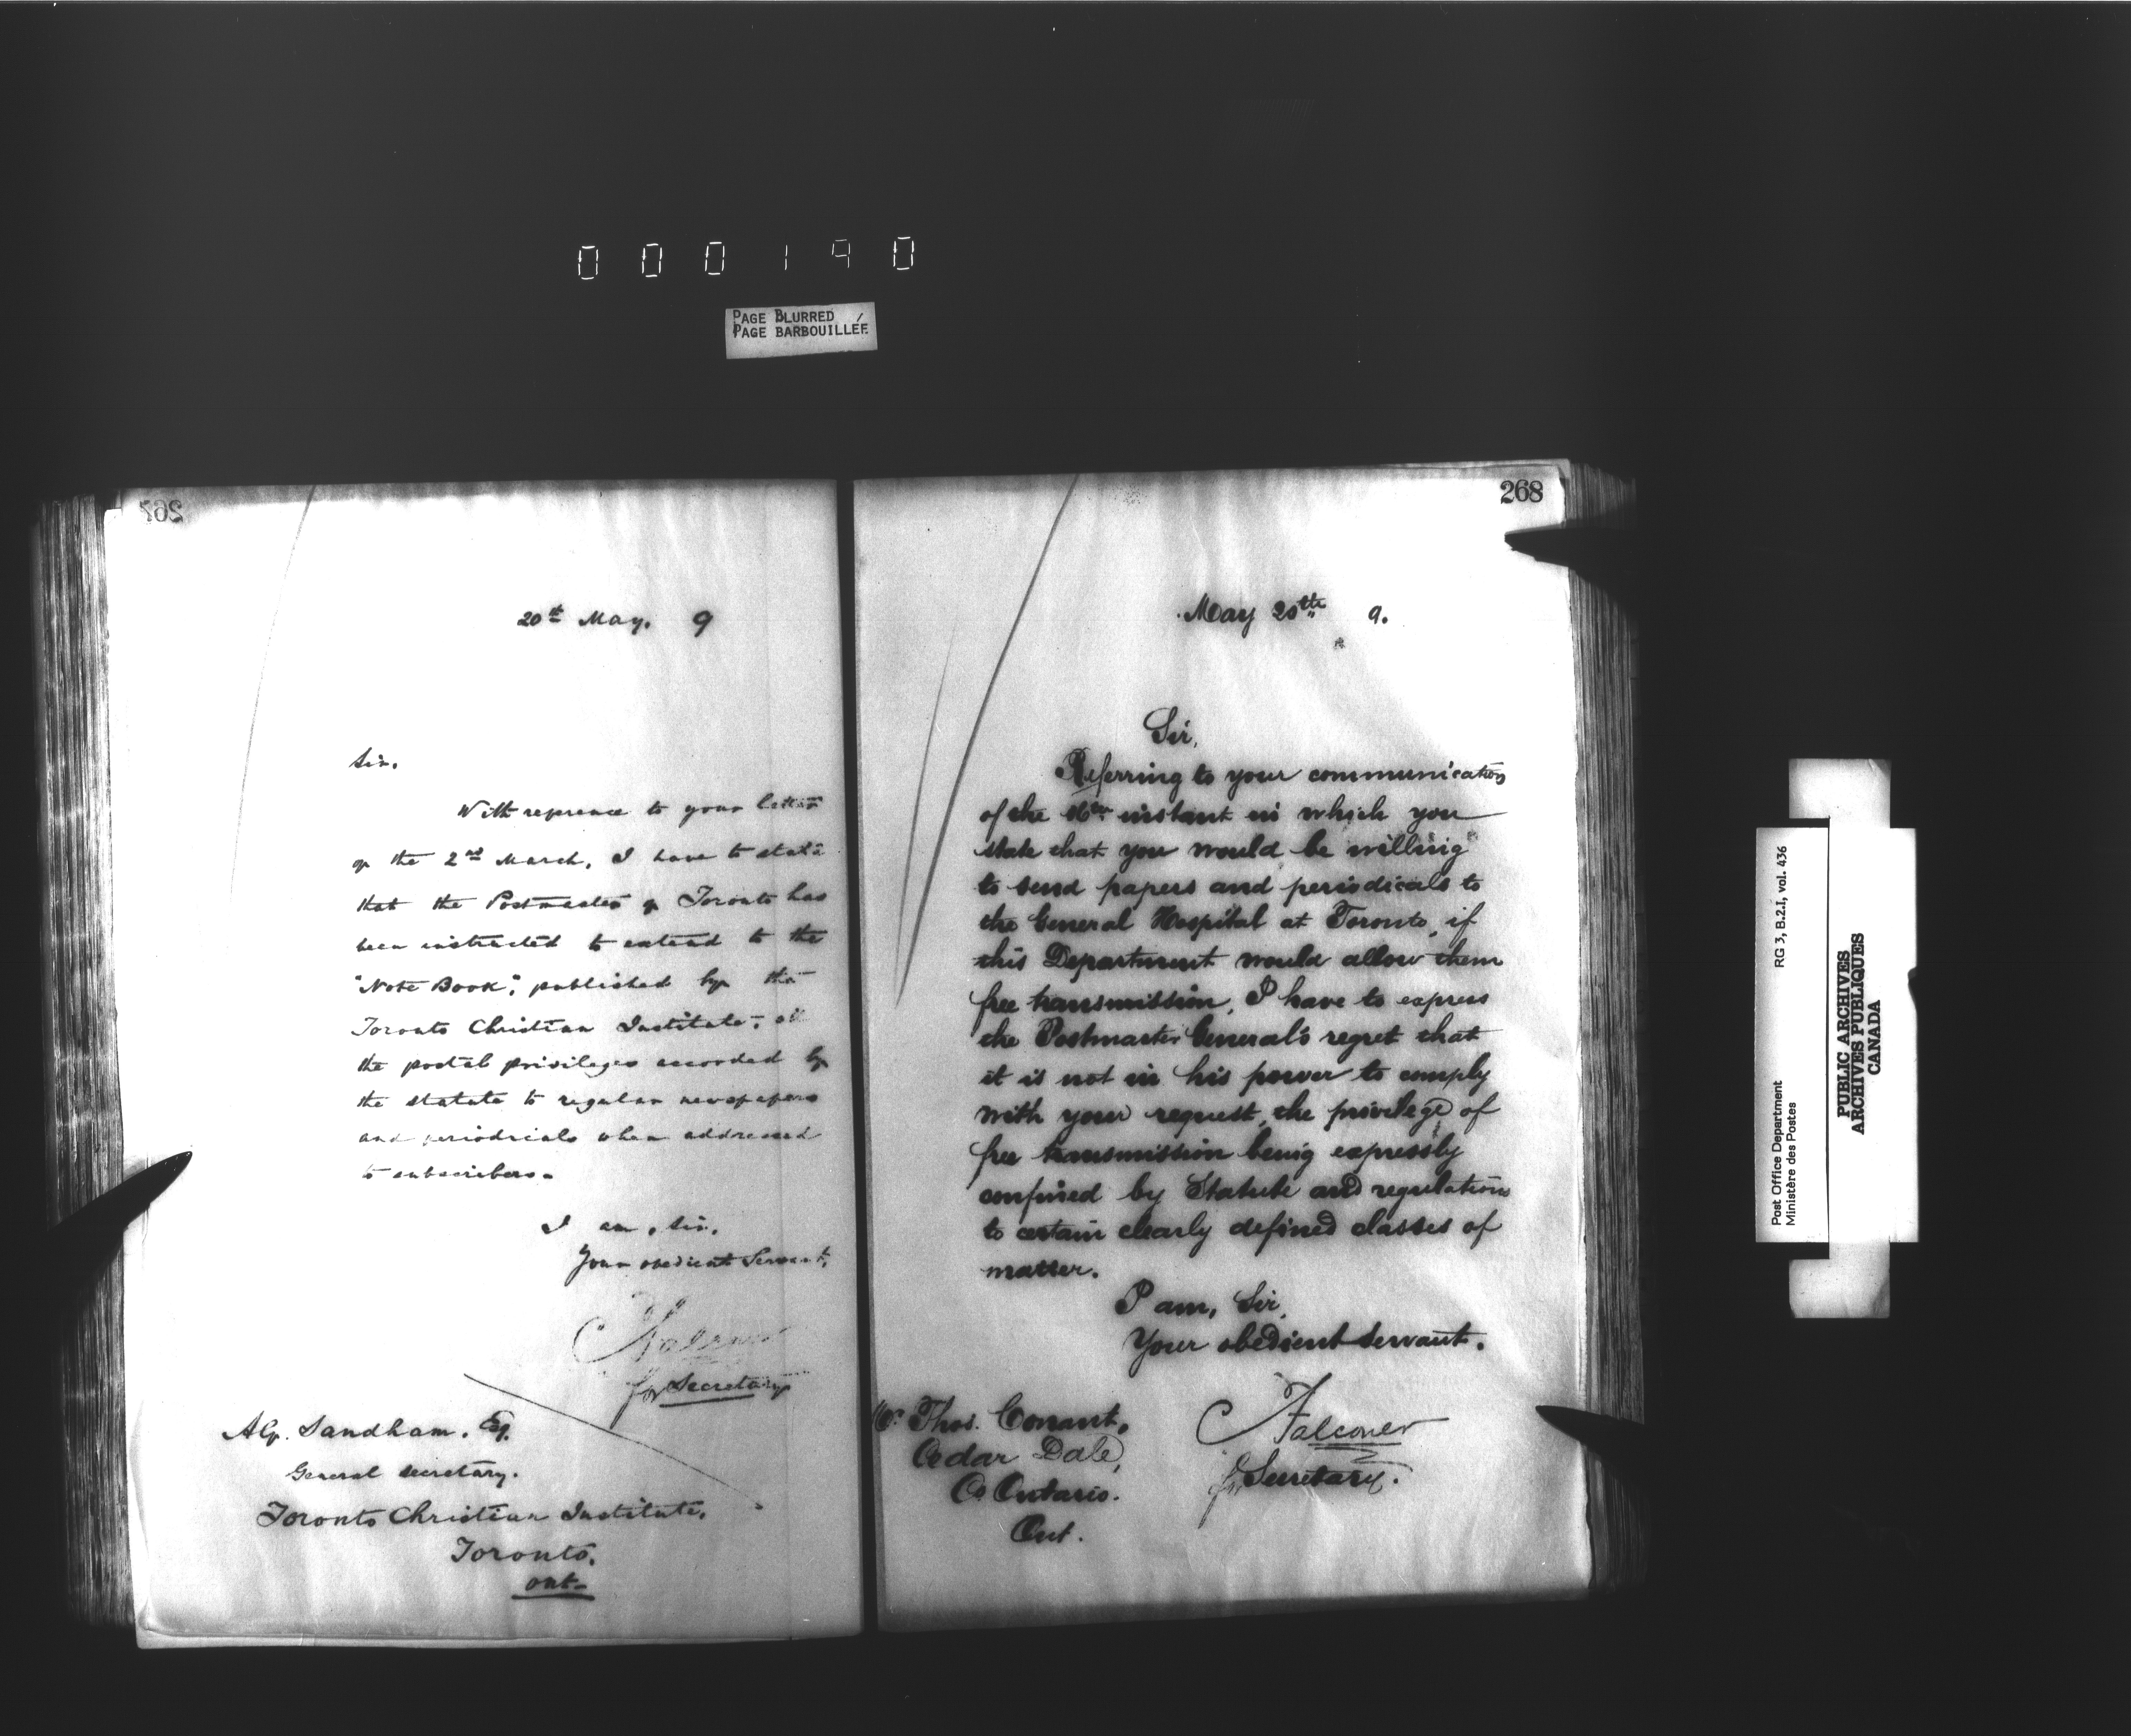 000190
PAGE BLURRED
PAGE BARBOUILLÉE
267
20th May. 9
Sir.
With reference to your letter
of the 2nd March, I have to state
that the Postmaster of Toronto has
been instructed to extend to the
"Note Book", published by the
Toronto Christian Institute, all
the postal privileges accorded by
the statute to regular newspapers
and periodicals when addressed
to subscribers.
I am, Sir,
Your obedient Servant,
Falconer
for Secretary
Alf. Sandham. Esq.
General Secretary.
Toronto Christian Institute,
Toronto.
Ont.
268
May 20th 9.
Sir,
Referring to your communication
of the instant in which you
state that you would be willing
to send papers and periodicals to
the General Hospital at Toronto, if
this Department would allow them
free transmission, I have to express
the Postmaster General's regret that
it is not in his power to comply
with your request, the privilege of
free transmission being expressly
confined by Statute and regulations
to certain clearly defined classes of
matter.
I am, Sir,
Your obedient servant.
Falconer
for Secretary.
Thos. Conant,
Cedar Dale,
Co Ontario.
Ont.
Post Office Department
Ministère des Postes
RG 3, B.2.I, vol. 436
PUBLIC ARCHIVES
ARCHIVES PUBLIQUES
CANADA